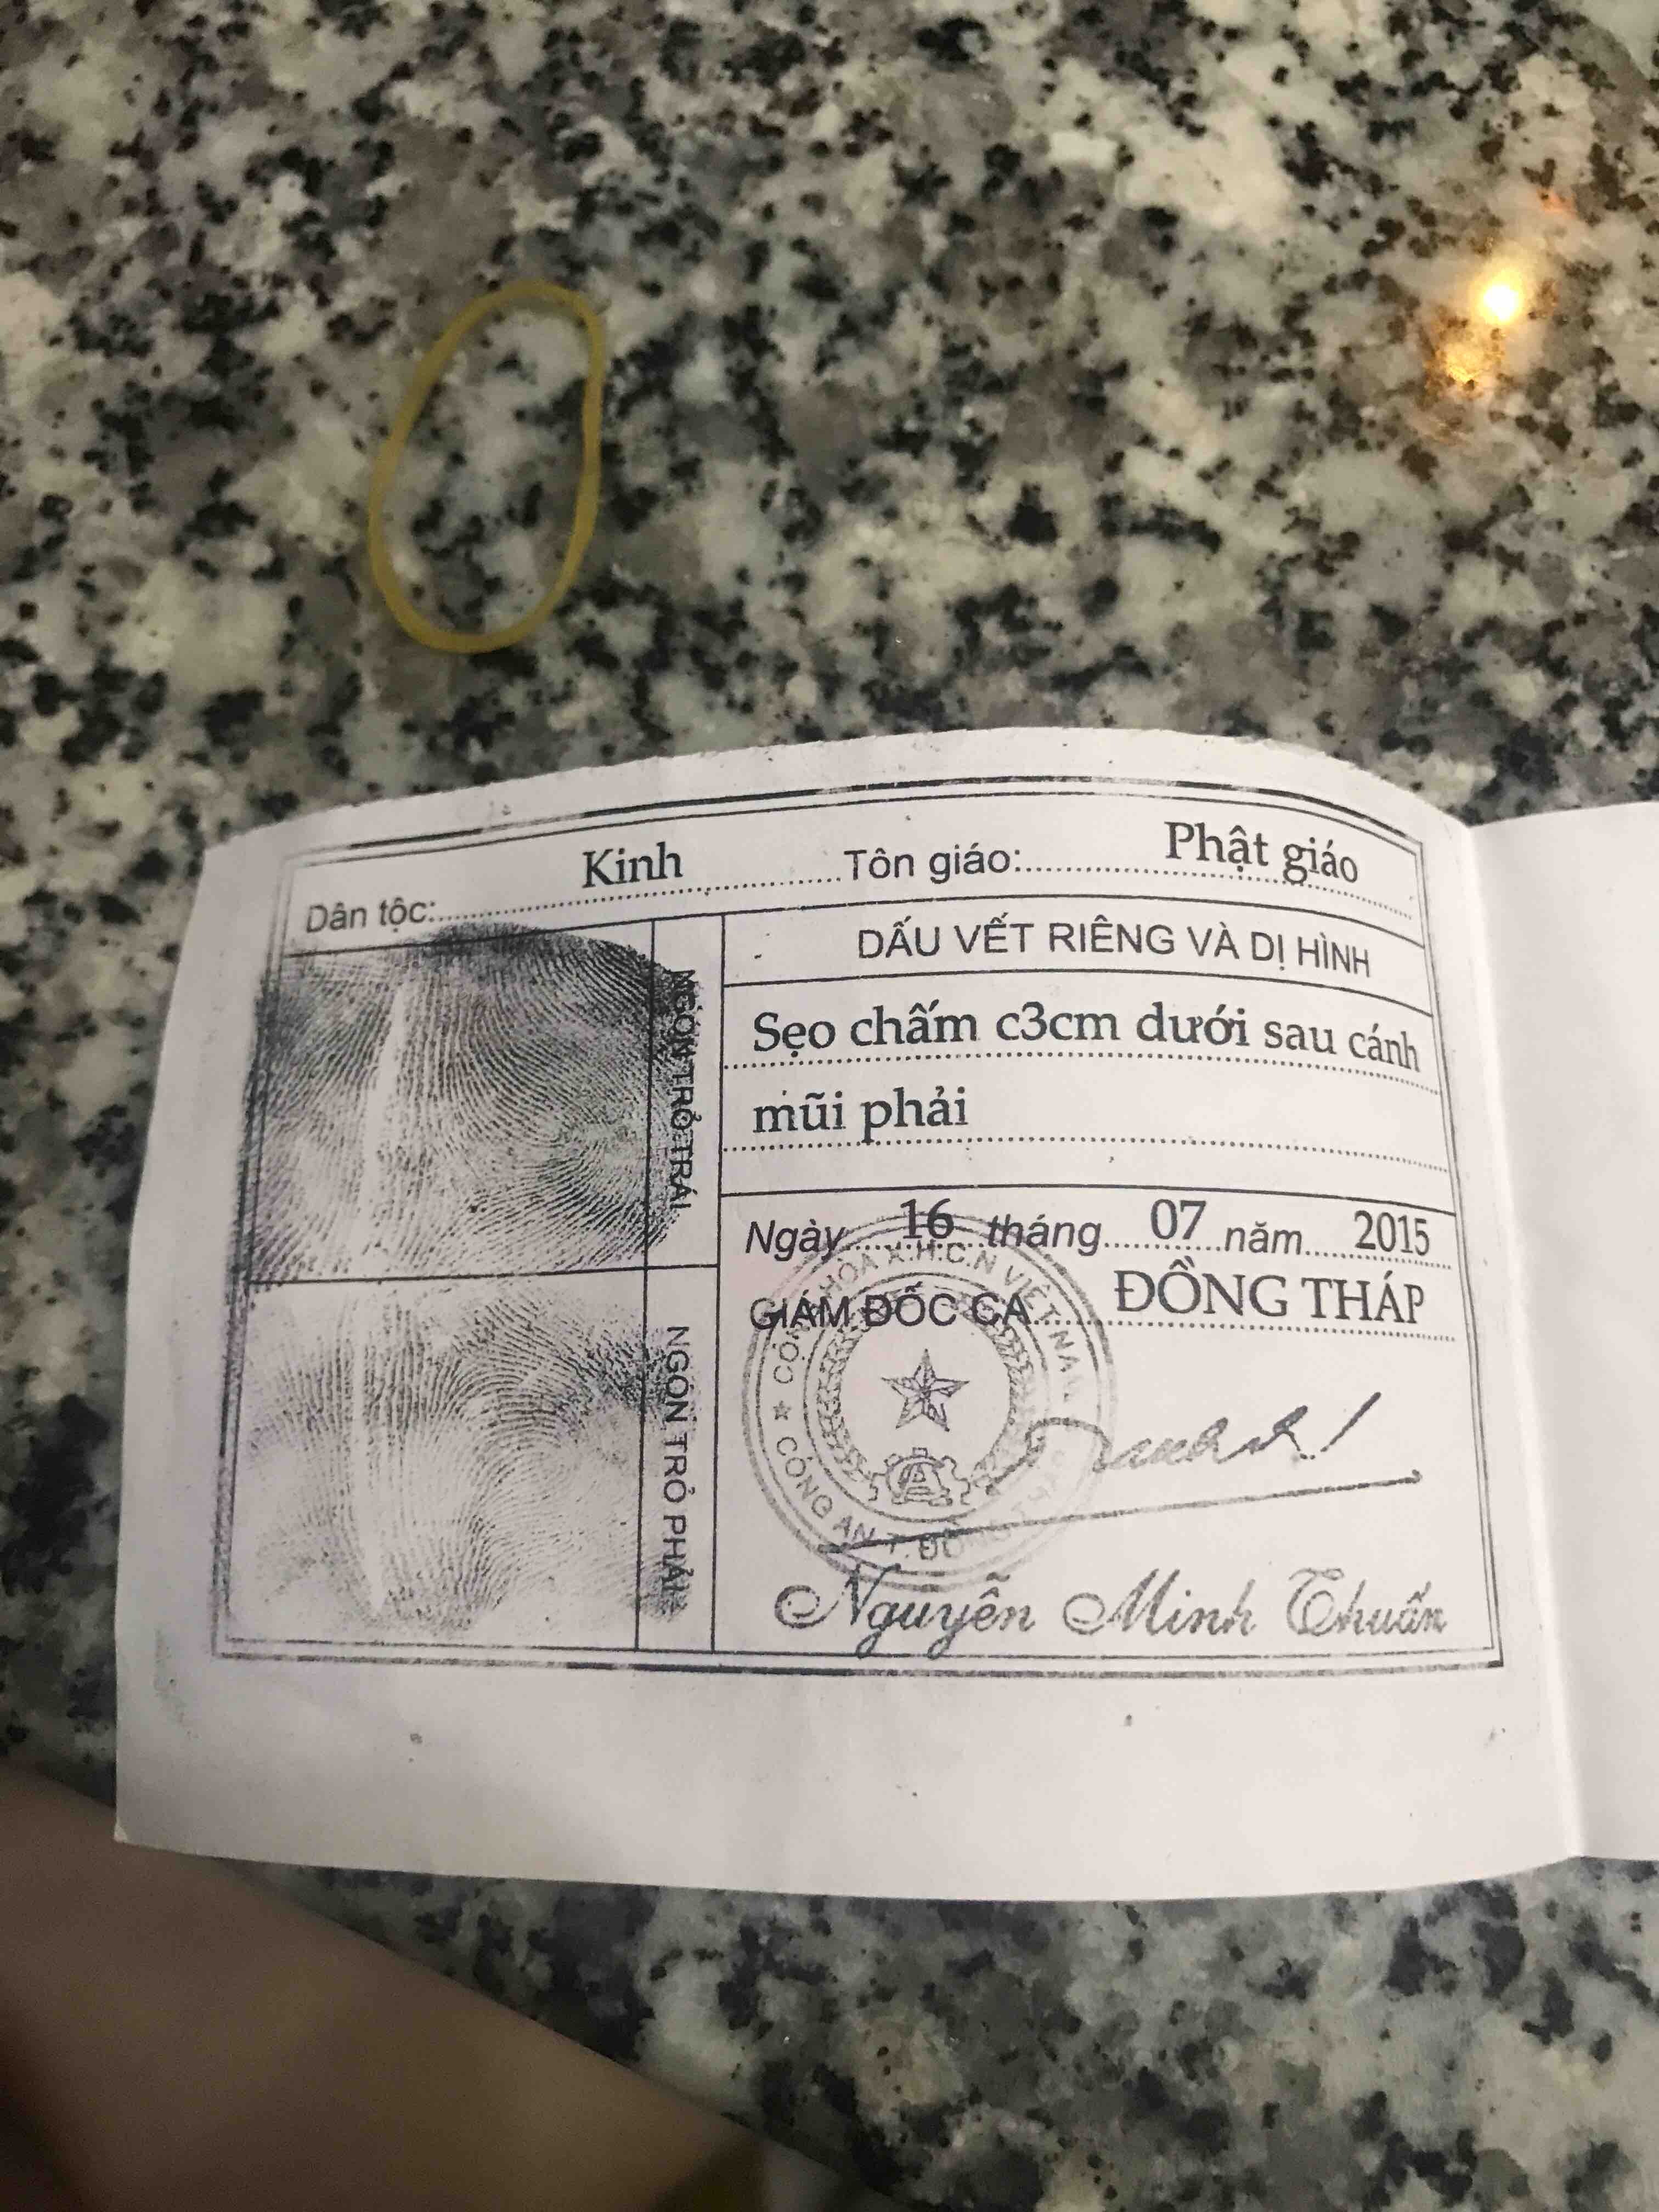 Dân tộc: Kinh Tôn giáo: Phật giáo
NGÓN TRỎ TRÁI
NGÓN TRỎ PHẢI
DẤU VẾT RIÊNG VÀ DỊ HÌNH
Sẹo chấm c3cm dưới sau cánh
mũi phải
Ngày 16 tháng 07 năm 2015
GIÁM ĐỐC CA ĐỒNG THÁP
CỘNG HÒA X.H.C.N VIỆT NAM
★ CÔNG AN T. ĐỒNG THÁP
Nguyễn Minh Thuấn